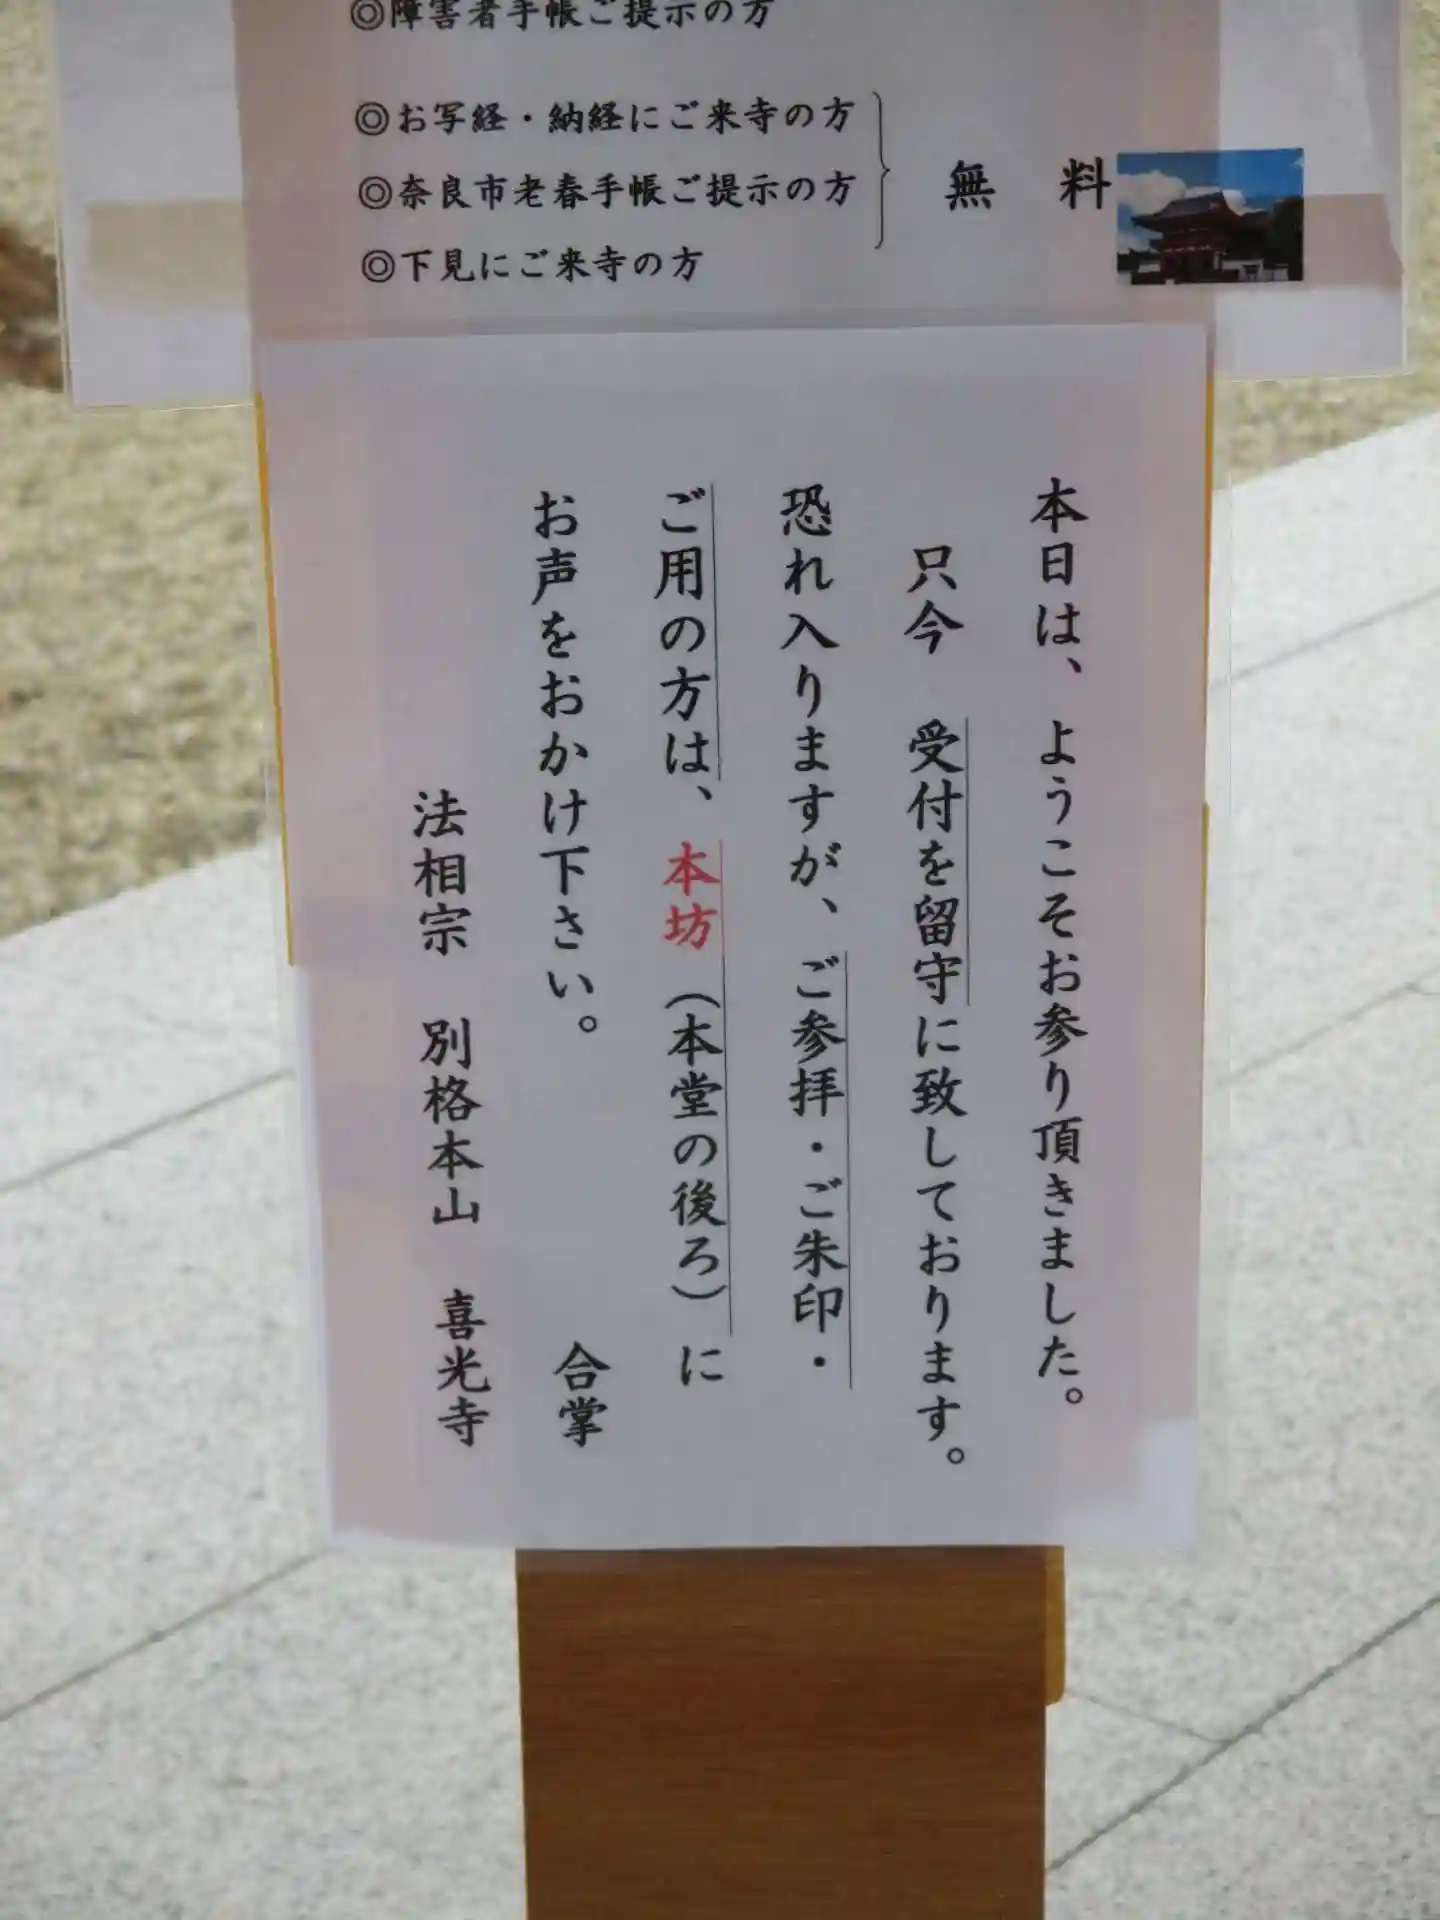 ◎障害者手帳ご提示の方
◎お写経・納経にご来寺の方
◎奈良市老春手帳ご提示の方
◎下見にご来寺の方
無 料
本日は、ようこそお参り頂きました。
只今 受付を留守に致しております。
恐れ入りますが、ご参拝・ご朱印・
ご用の方は、本坊（本堂の後ろ）に
お声をおかけ下さい。
合掌
法相宗 別格本山 喜光寺